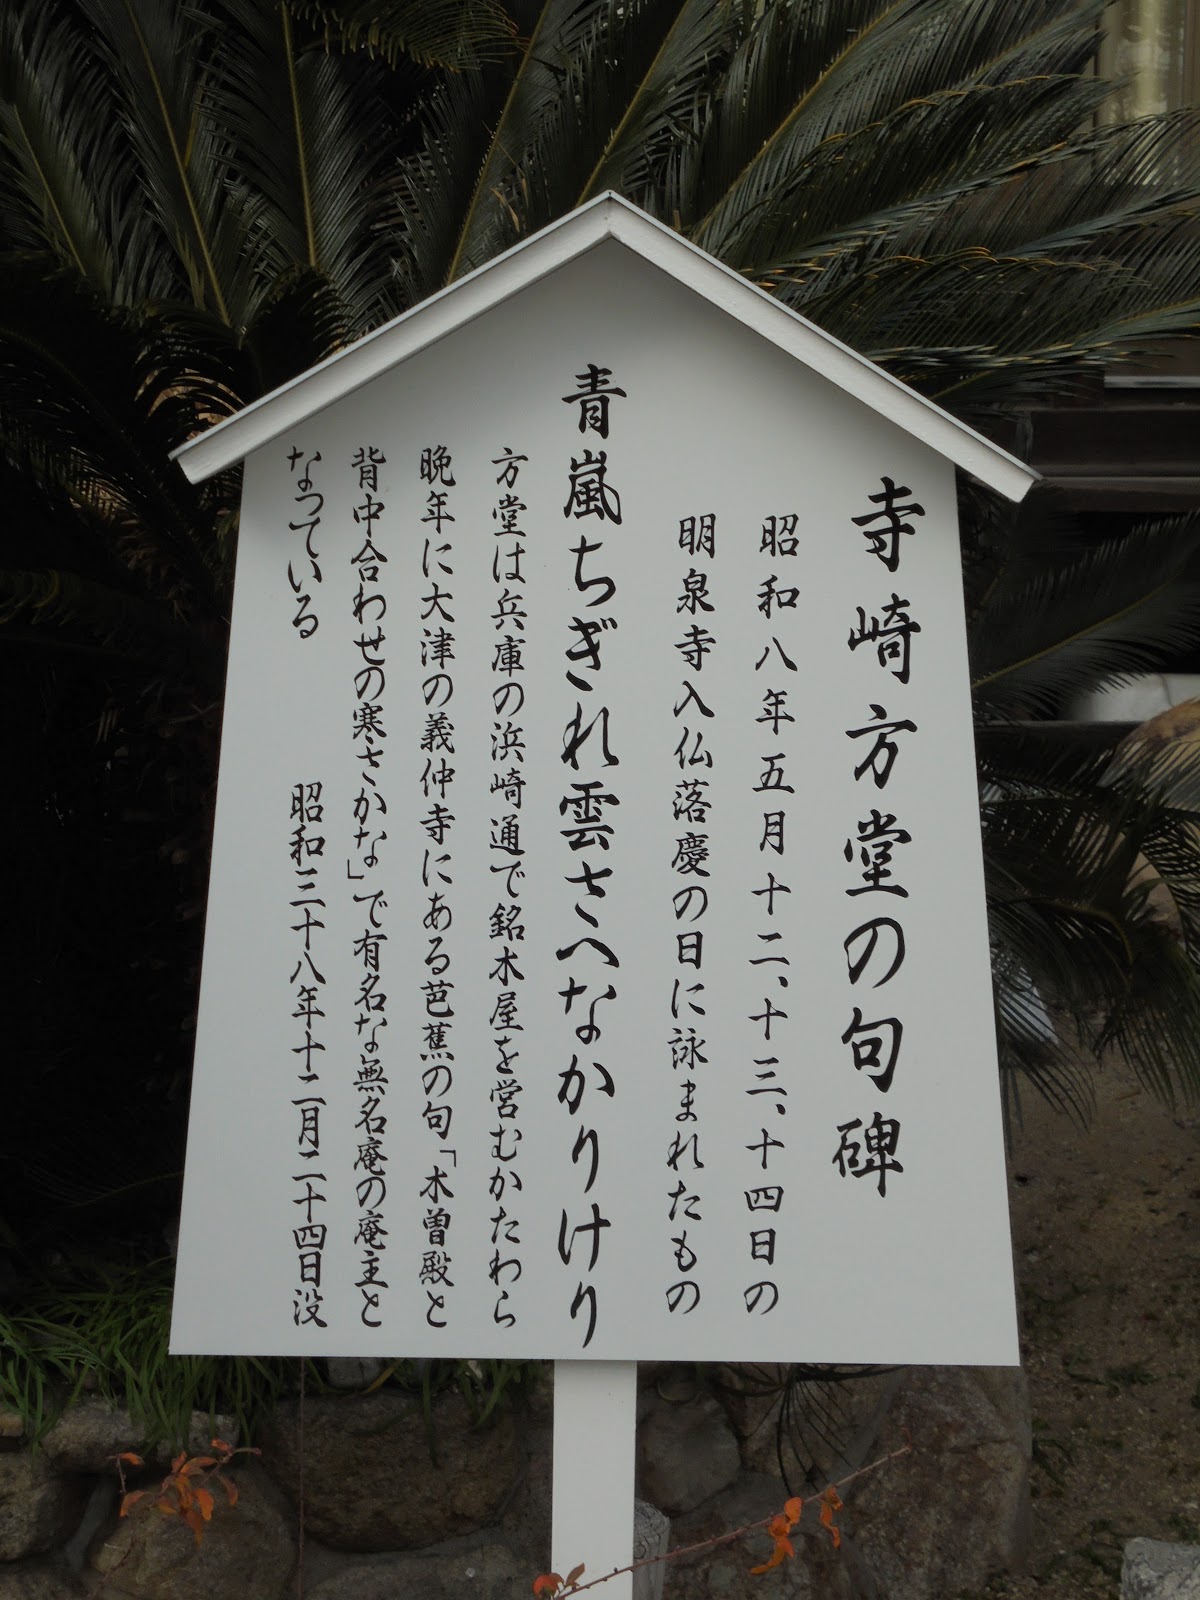 寺崎方堂の句碑
昭和八年五月十二、十三、十四日の
明泉寺入仏落慶の日に詠まれたもの
青嵐ちぎれ雲さへなかりけり
方堂は兵庫の浜崎通で銘木屋を営むかたわら
晩年に大津の義仲寺にある芭蕉の句「木曽殿と
背中合わせの寒さかな」で有名な無名庵の庵主と
なっている　　昭和三十八年十二月二十四日没